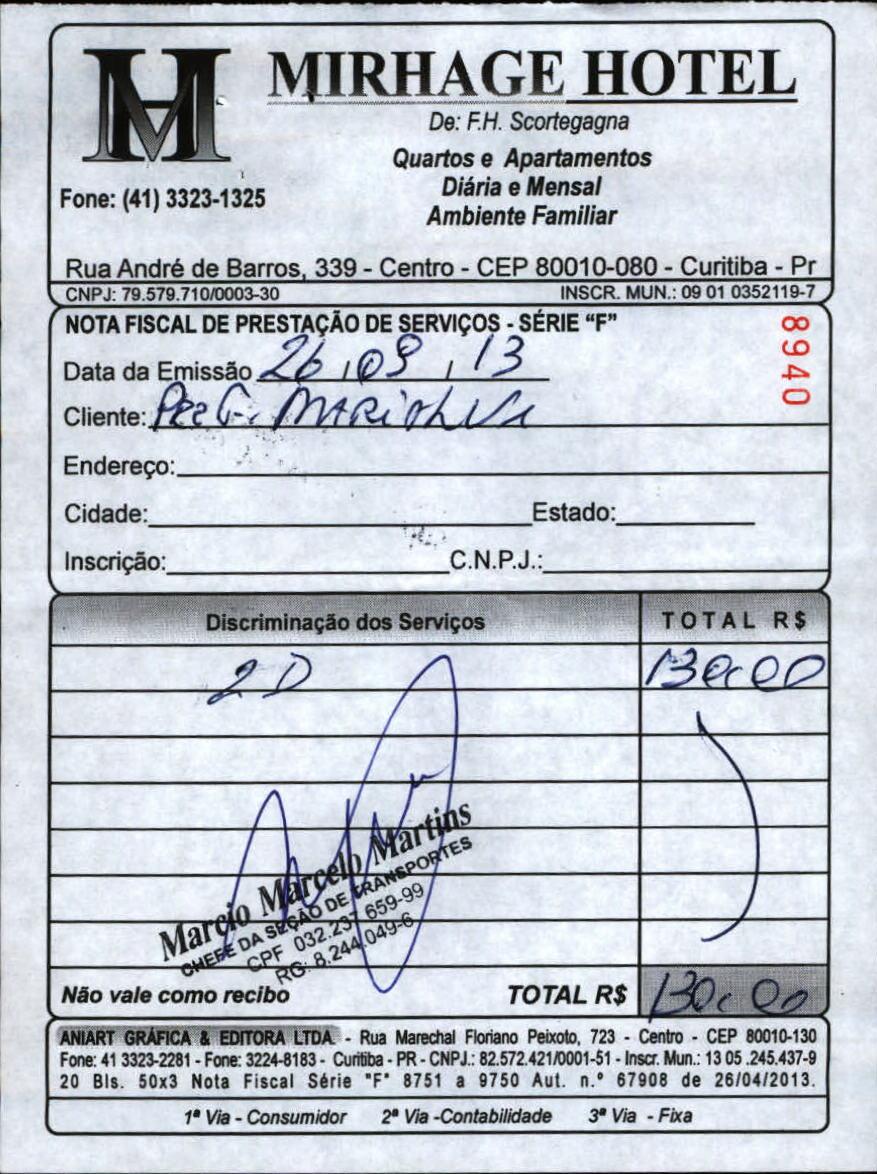 MIRHAGE HOTEL
De: F.H. Scortegagna
Quartos e Apartamentos
Diária e Mensal
Ambiente Familiar
Fone: (41) 3323-1325
Rua André de Barros, 339 - Centro - CEP 80010-080 - Curitiba - Pr
CNPJ: 79.579.710/0003-30 INSCR. MUN.: 09 01 0352119-7
NOTA FISCAL DE PRESTAÇÃO DE SERVIÇOS - SÉRIE "F"
8940
Data da Emissão 26 / 09 / 13
Cliente: MARIALVA
Endereço:
Cidade: Estado:
Inscrição: C.N.P.J.:
Discriminação dos Serviços TOTAL R$
2 D 130,00
Marcio Marcelo Martins
CHEFE DA SEÇÃO DE TRANSPORTES
CPF 032.237 659-99
RG: 8.244.049-6
Não vale como recibo TOTAL R$ 130,00
ANIART GRÁFICA & EDITORA LTDA - Rua Marechal Floriano Peixoto, 723 - Centro - CEP 80010-130
Fone: 41 3323-2281 - Fone: 3224-8183 - Curitiba - PR - CNPJ.: 82.572.421/0001-51 - Inscr. Mun.: 13 05 .245.437-9
20 Bls. 50x3 Nota Fiscal Série "F" 8751 a 9750 Aut. n.º 67908 de 26/04/2013.
1ª Via - Consumidor 2ª Via -Contabilidade 3ª Via - Fixa